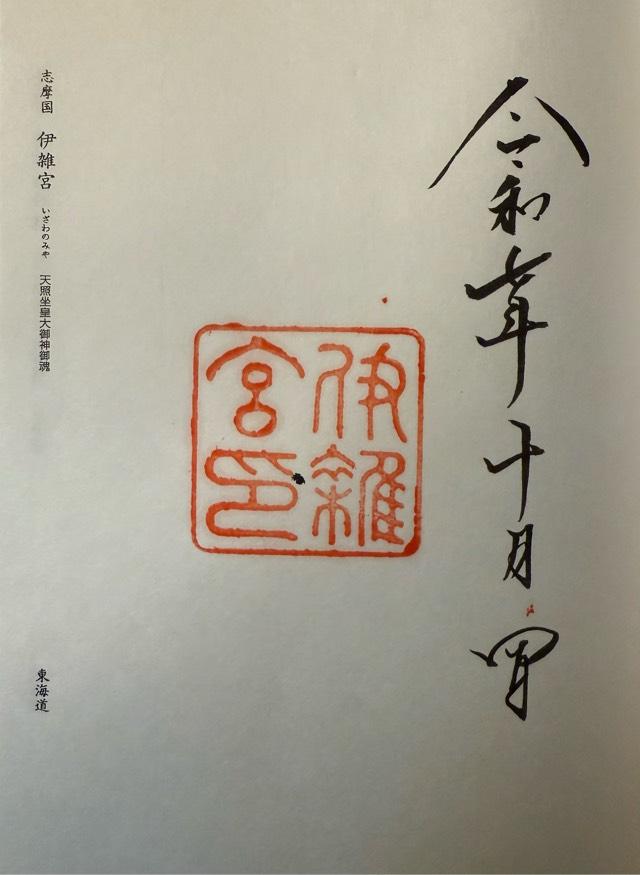 令和七年十月四日
伊雜
宮印
志摩国 伊雑宮 いざわのみや 天照坐皇大御神御魂
東海道